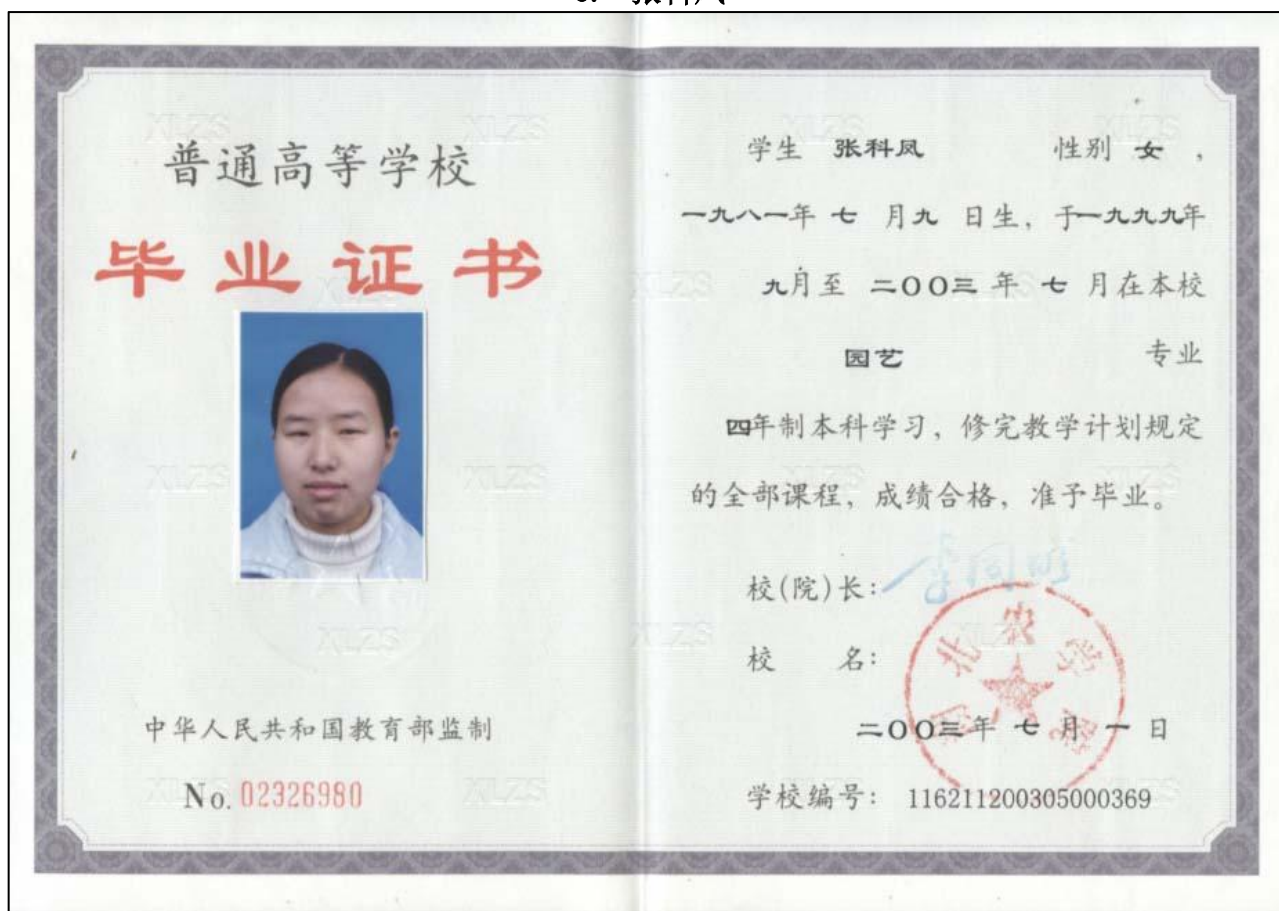 普通高等学校
毕业证书
XLZS
中华人民共和国教育部监制
No. 02326980
学生 张科凤 性别 女 ,
一九八一年 七 月 九 日生, 于一九九九年
九月至 二〇〇三 年 七 月在本校
园艺 专业
四年制本科学习, 修完教学计划规定
的全部课程, 成绩合格, 准予毕业。
校(院)长:
校 名:
湖北农学院
二〇〇三年 七 月 一 日
学校编号: 116211200305000369